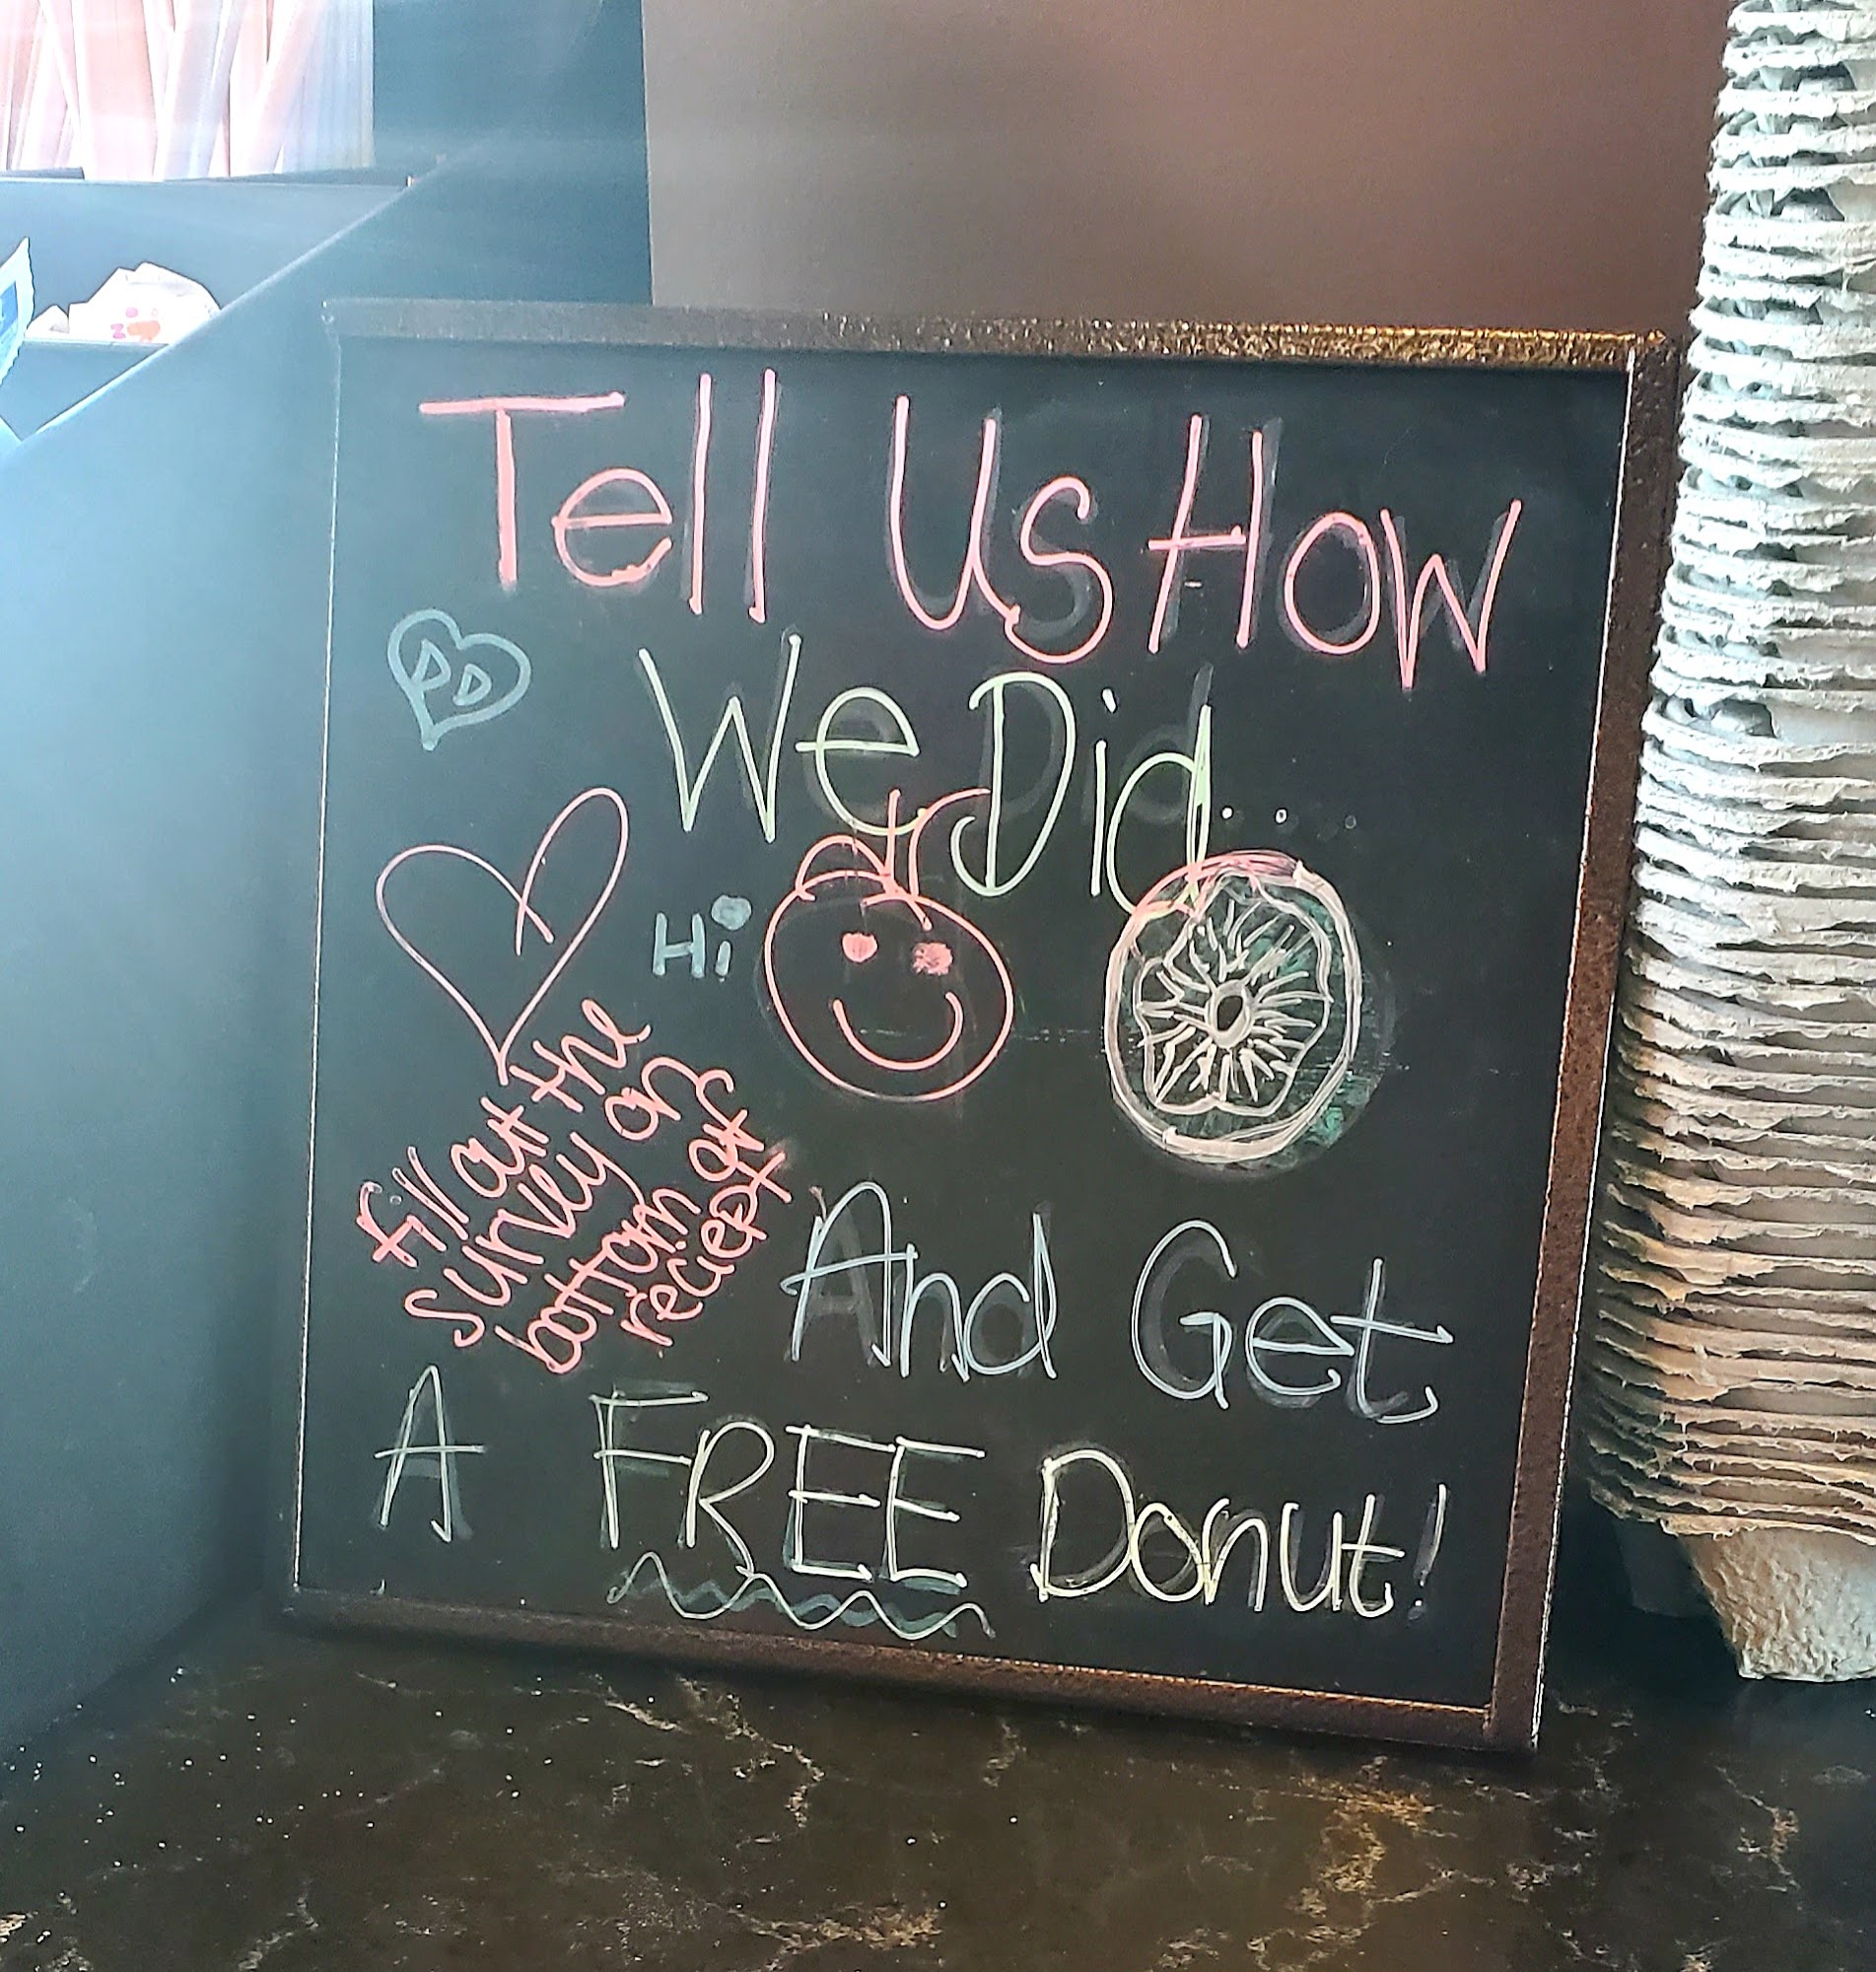 Tell Us How
DD
We Did...
Hi
fill out the
survey on
bottom of
reciept
And Get
A FREE Donut!